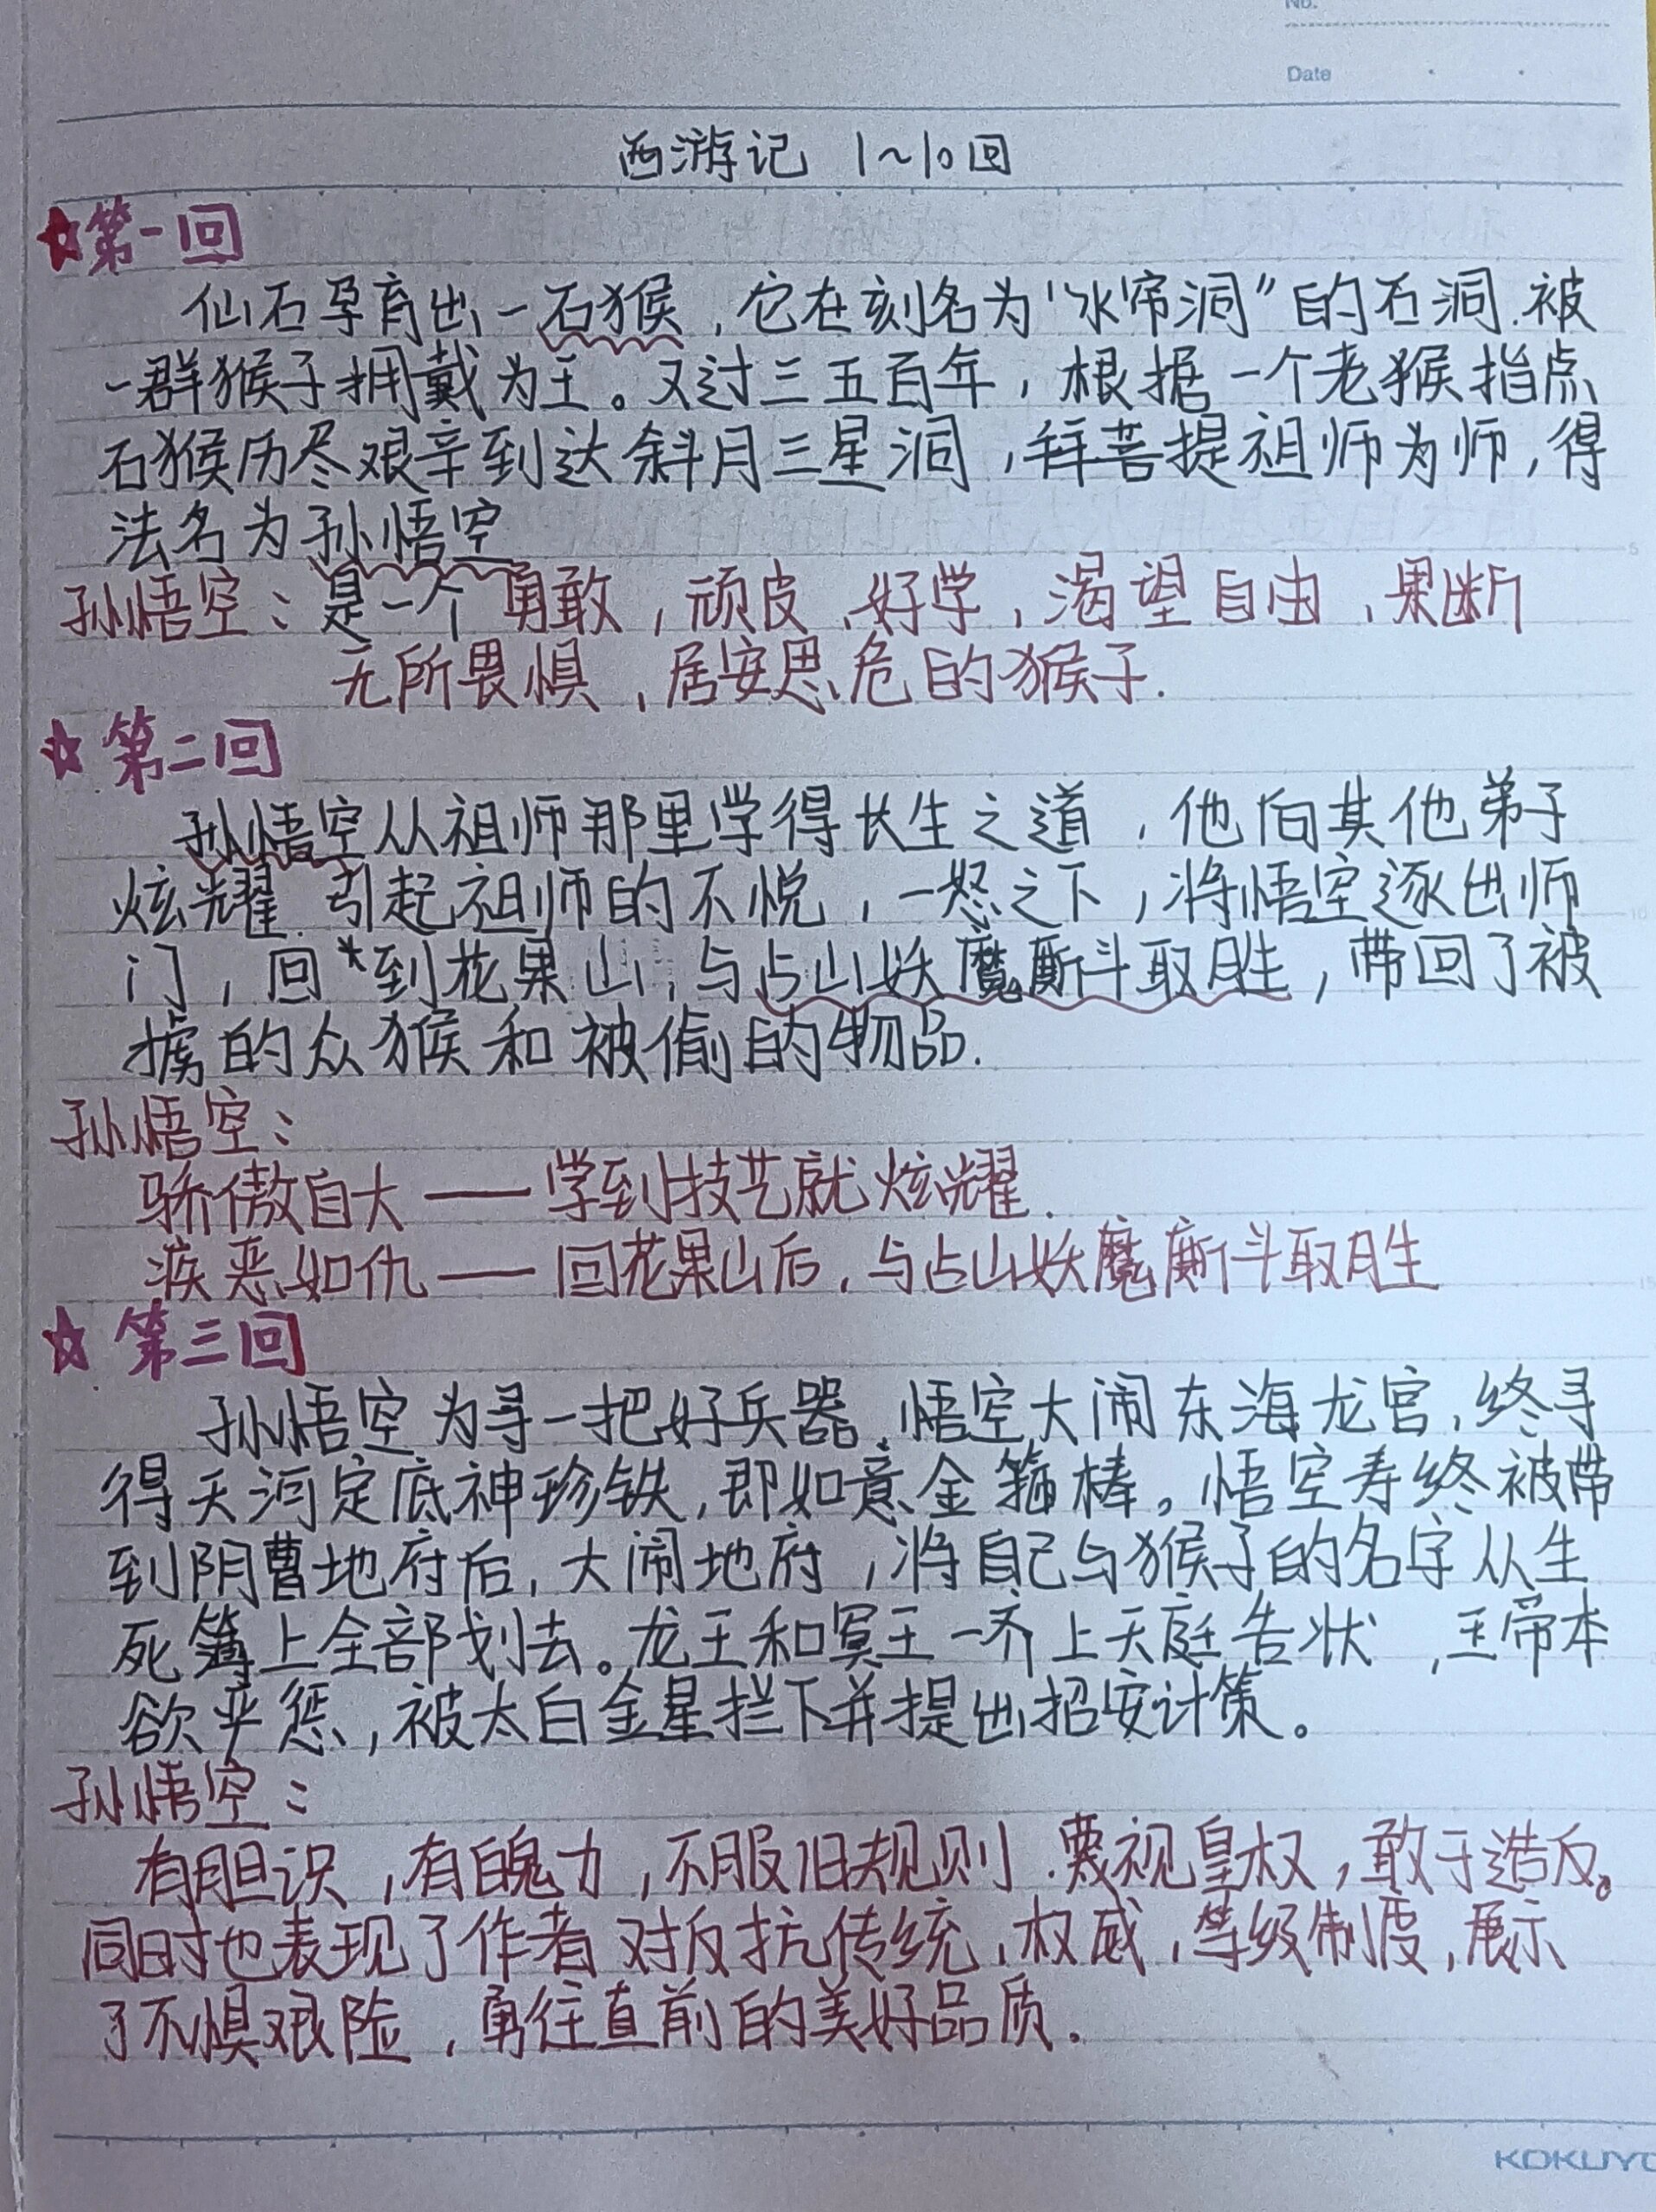 No.
Date
西游记 1~10回
☆第一回
仙石孕育出一石猴，它在刻名为“水帘洞”的石洞.被
一群猴子拥戴为王。又过三五百年，根据一个老猴指点
石猴历尽艰辛到达斜月三星洞，拜菩提祖师为师，得
法名为孙悟空
孙悟空：是一个勇敢，顽皮、好学，渴望自由，果断
无所畏惧，居安思危的猴子.
☆第二回
孙悟空从祖师那里学得长生之道，他向其他弟子
炫耀.引起祖师的不悦，一怒之下，将悟空逐出师
门，回*到花果山，与占山妖魔厮斗取胜，带回了被
掳的众猴和被偷的物品.
孙悟空：
骄傲自大——学到技艺就炫耀.
疾恶如仇——回花果山后，与占山妖魔厮斗取胜
☆第三回
孙悟空为寻一把好兵器，悟空大闹东海龙宫，终寻
得天河定底神珍铁，即如意金箍棒。悟空寿终被带
到阴曹地府后，大闹地府，将自己与猴子的名字从生
死簿上全部划去。龙王和冥王一齐上天庭告状，玉帝本
欲严惩，被太白金星拦下并提出招安计策。
孙悟空：
有胆识，有魄力，不服旧规则.蔑视皇权，敢于造反。
同时也表现了作者对反抗传统，权威，等级制度，展示
了不惧艰险，勇往直前的美好品质.
5
10
15
KOKUYO